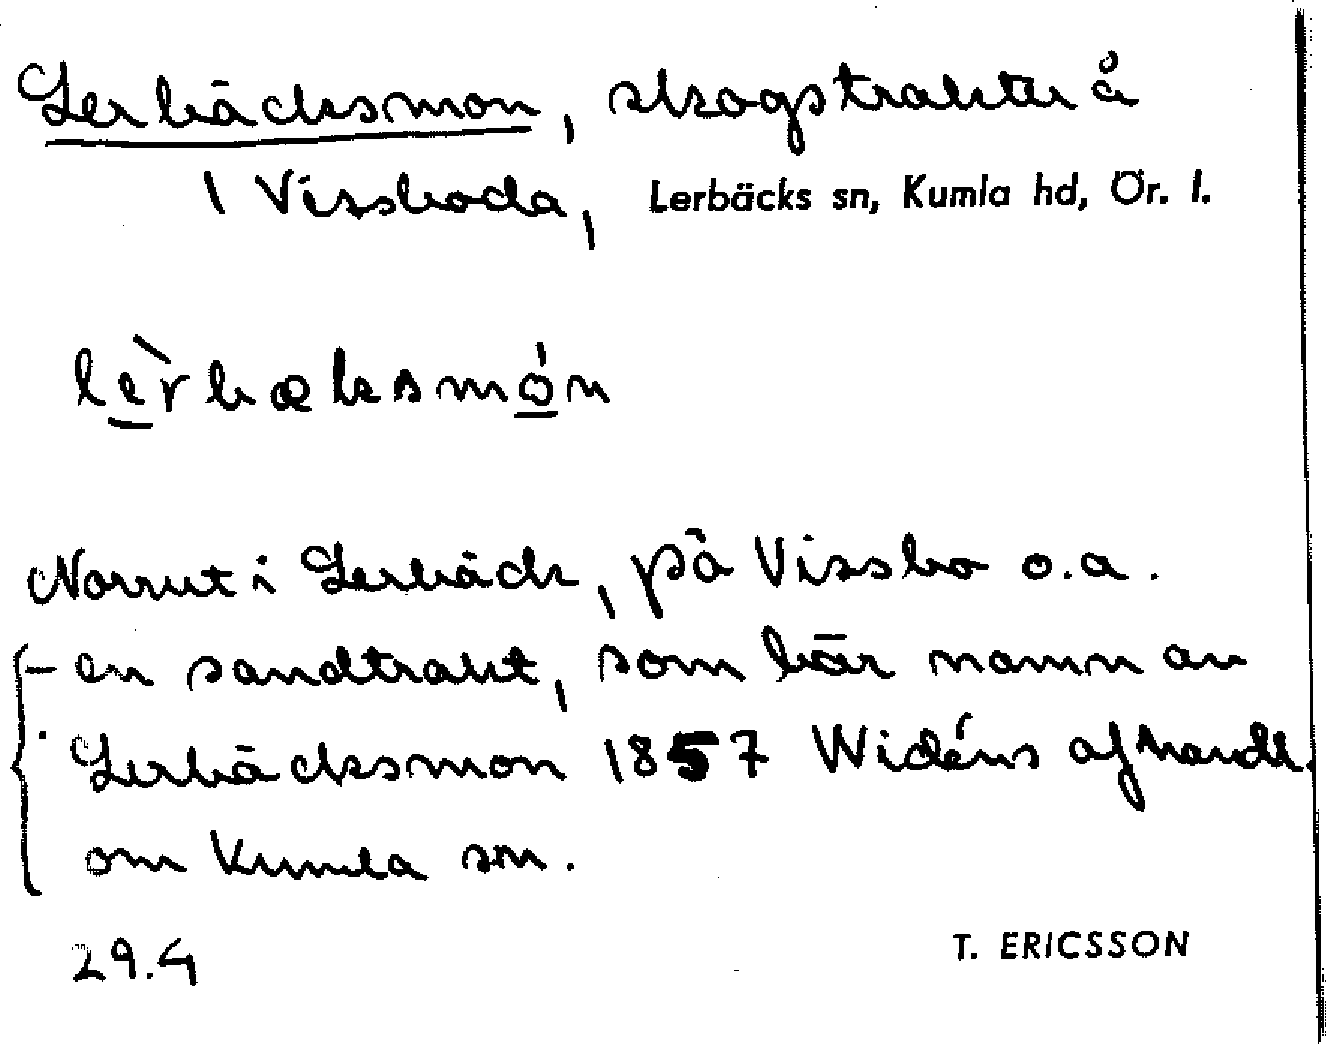 Lerbäcksmon, skogstrakter å
1 Vissboda, Lerbäcks sn, Kumla hd, Ör. l.
lèrbæksmón
Norrut i Lerbäck, på Vissbo o.a.
– en sandtrakt, som bär namn av
Lerbäcksmon 1857 Widéns afhandl.
om Kumla sn.
29.4
T. ERICSSON